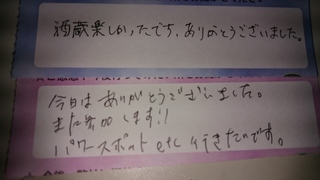 酒蔵楽しかったです。ありがとうございました。
今日はありがとうございました。
また参加します!!
パワースポット etc 行きたいです。